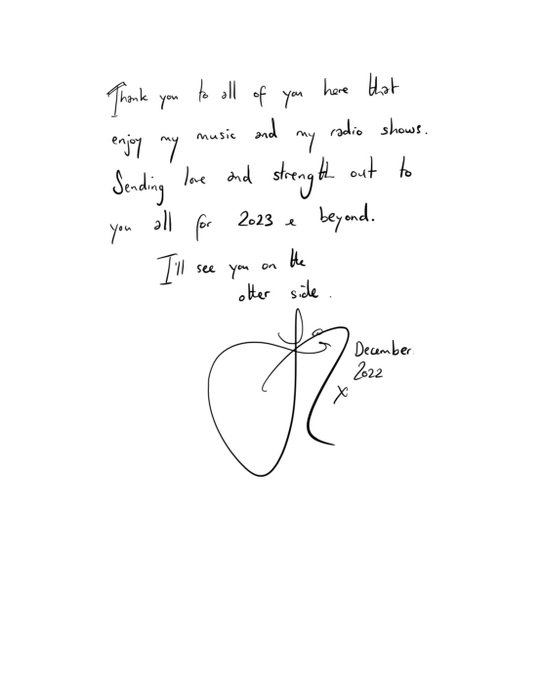 Thank you to all of you here that
enjoy my music and my radio shows.
Sending love and strength out to
you all for 2023 & beyond.
I'll see you on the
other side.
December
2022
x